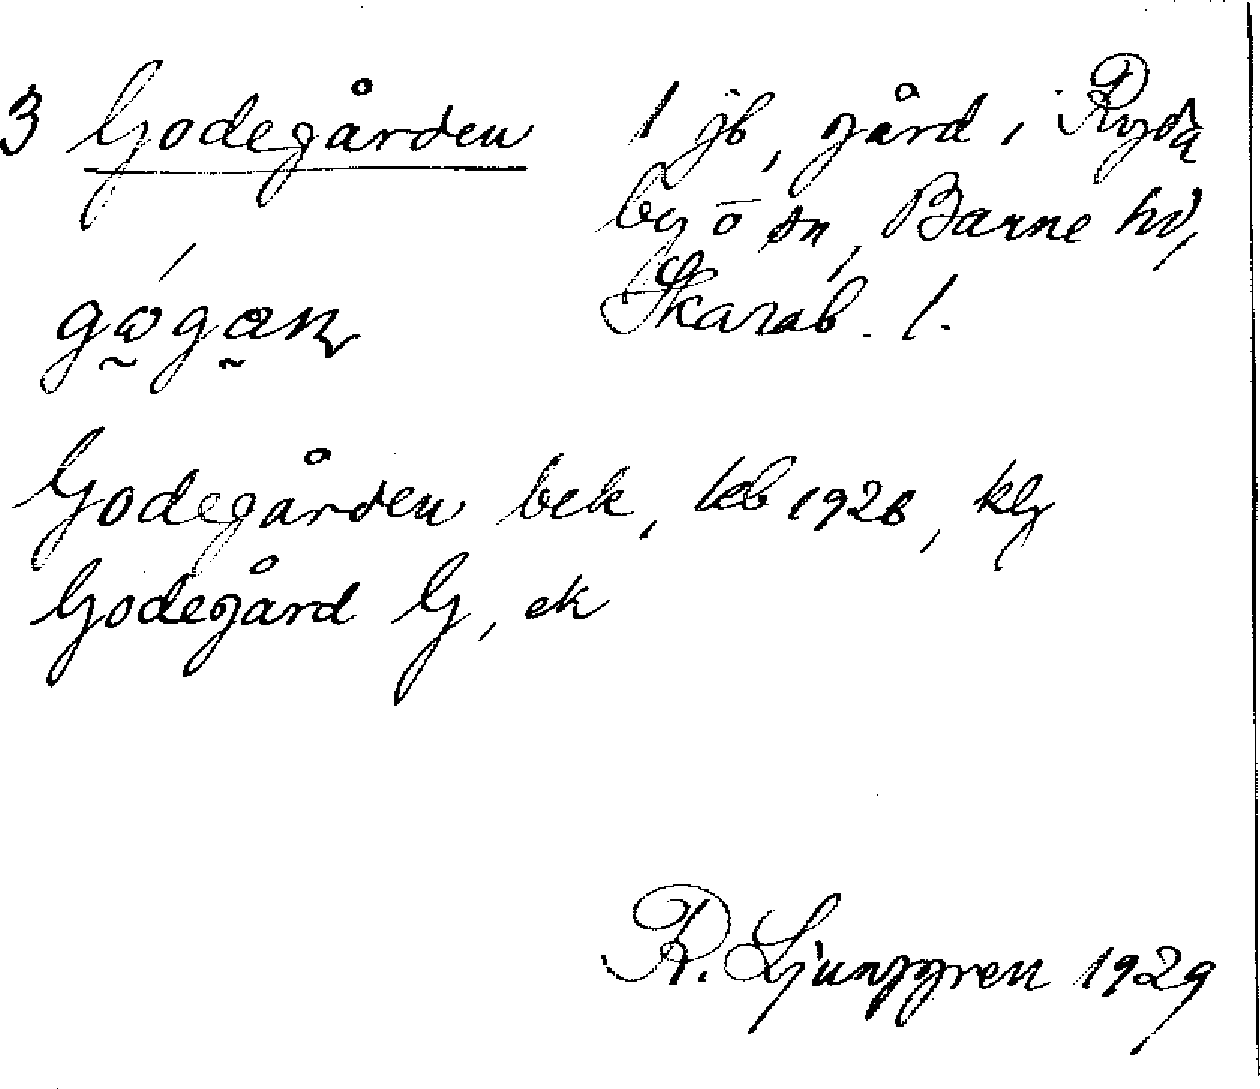 3 Godegården 1 jb, gård i Ryda
by o sn, Barne hd,
Skarab. l.
Godegården bek, kb 1926, klg
Godegård G, ek
R. Ljunggren 1929